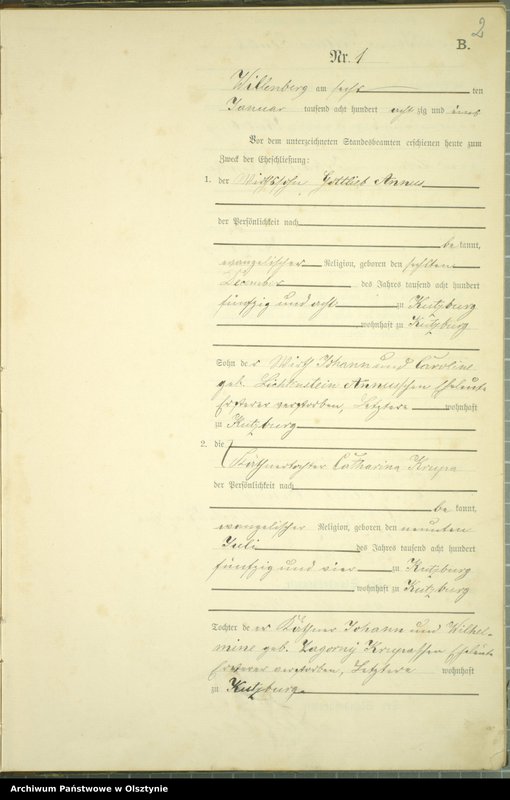 2
B.
Nr. 1
Willenberg am sechs ten
Januar tausend acht hundert acht zig und eins
Vor dem unterzeichneten Standesbeamten erschienen heute zum
Zweck der Eheschließung:
1. der Wirthssohn Gottlieb Annus
der Persönlichkeit nach
be kannt,
evangelischer Religion, geboren den sechsten
December des Jahres tausend acht hundert
fünfzig und acht zu Kutzburg
wohnhaft zu Kutzburg
Sohn de r Wirth Johann und Caroline
geb. Lichtenstein Annusschen Eheleute
Ersterer verstorben, Letztere wohnhaft
zu Kutzburg
2. die
Käthnertochter Catharina Krupa
der Persönlichkeit nach
be kannt,
evangelischer Religion, geboren den neunten
Juli des Jahres tausend acht hundert
fünfzig und vier zu Kutzburg
wohnhaft zu Kutzburg
Tochter de er Käthner Johann und Wilhel-
mine geb. Zagorny Krupaschen Eheleute
Ersterer verstorben, Letztere wohnhaft
zu Kutzburg
Archiwum Państwowe w Olsztynie